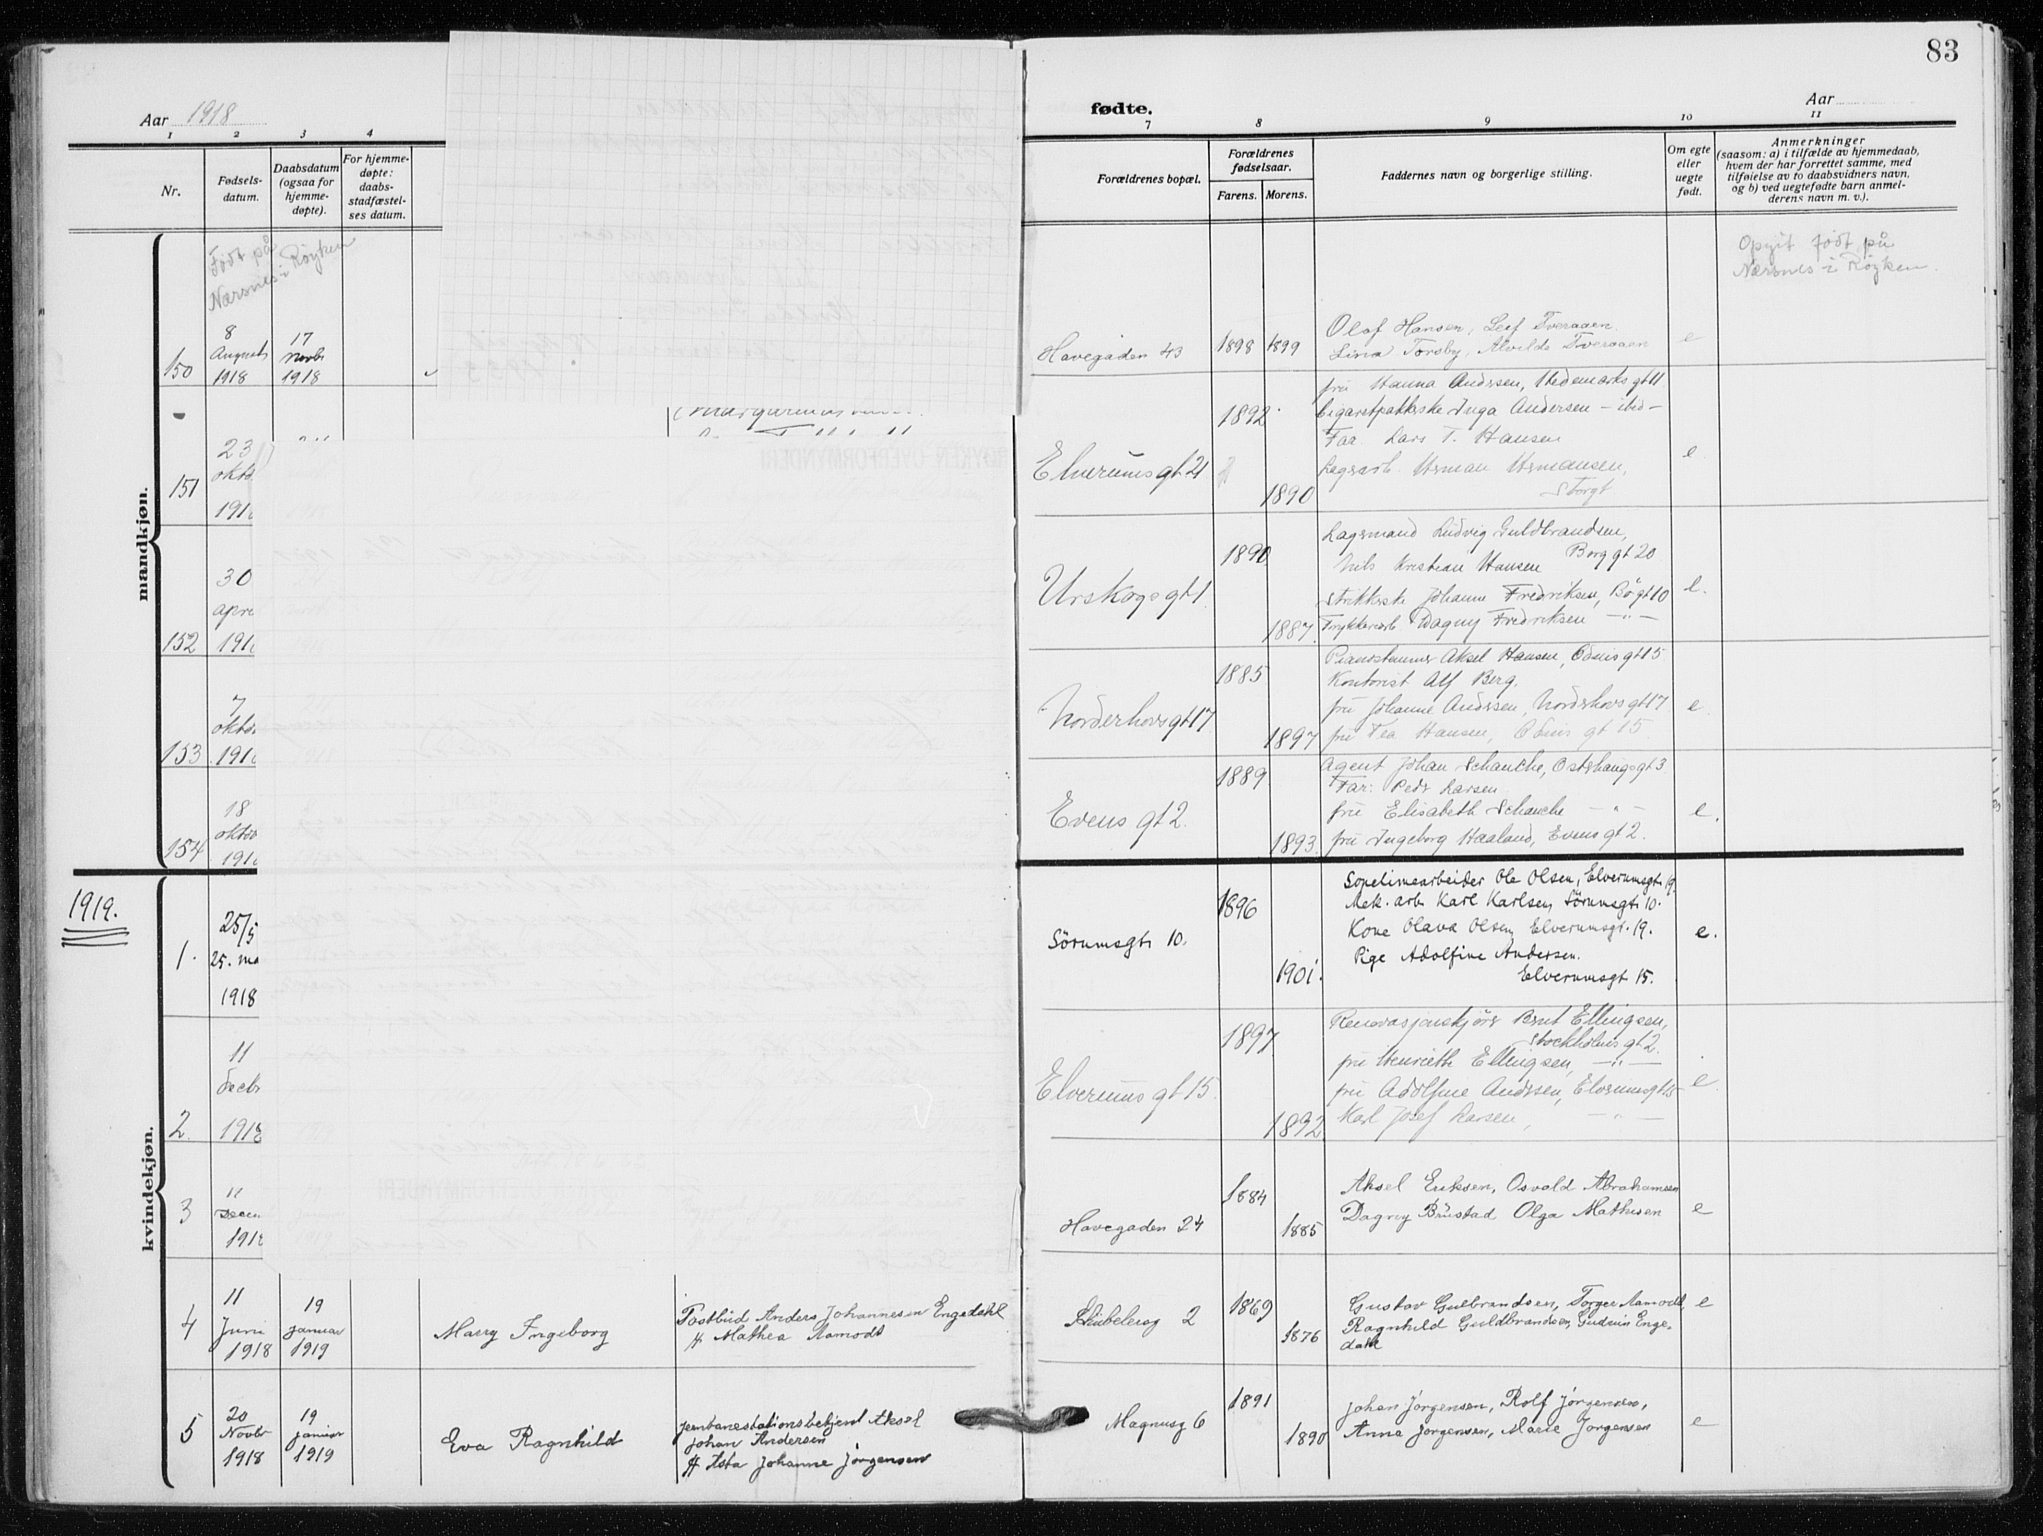 83
Aar 1918
fødte.
Aar
1 2 3 4 7 8 9 10 11
Nr.
Fødsels-
datum.
Daabsdatum
(ogsaa for
hjemme-
døpte).
For hjemme-
døpte:
daabs-
stadfæstel-
ses datum.
Forældrenes bopæl.
Forældrenes
fødselsaar.
Farens. Morens.
Faddernes navn og borgerlige stilling.
Om egte
eller
uegte
født.
Anmerkninger
(saasom: a) i tilfælde av hjemmedaab,
hvem der har forrettet samme, med
tilføielse av to daabsvidners navn,
og b) ved uegtefødte barn anmel-
derens navn m. v.).
mandkjøn.
Født på
Nærsnes i Røyken
Opgit født på
Nærsnes i Røyken.
150
8
August
1918
17
Novbr
1918
Havegaden 43
1898 1899
Olaf Hansen, Leif Tveraaen
Lina Torsby, Alvilde Tveraaen
e
151
23
okto
191
Elverums gt 21
1892
1890
fru Hanna Andersen, Hedemarks gt 11
Inga Andersen - ibid -
Far Lars T. Hansen
Lagerarb. Herman Hermansen,
Storgt
e.
152
30
apri
191
Urskogs gt 1
1890
1887
Lagermand Ludvig Guldbrandsen,
Borg gt 20
Nils Kristian Hansen
Strikkerske Johanne Fredriksen, Bögt 10
Trykkeriarb. Dagny Fredriksen - " -
e.
153
7
okto
191
Norderhovs gt 17
1885
1897
Pianostemmer Aksel Hansen, Odins gt 15
Kontorist Alf Berg.
fru Johanne Andersen, Norderhovs gt 17
fru Tea Hansen, Odins gt 15
e.
154
18
okto
191
Evens gt 2.
1889
1893.
Agent Johan Schanche, Østshaugs gt 3
Far: Peder Larsen
fru Elisabeth Schanche - " -
fru Ingeborg Haaland, Evens gt 2.
e.
1919.
kvindekjøn.
1.
25/5
25. ma
1918
Sörumsgt. 10.
1896
1901.
Ole Olsen, Elverumsgt. 19.
Mek. arb. Karl Karlsen, Sörumsgt. 10.
Kone Olava Olsen, Elverumsgt. 19.
Pige Adolfine Andersen.
Elverumsgt 15.
e.
2.
11
Decbr
191
Elverums gt 15.
1897
1892
Renovasjonskjörer Bernt Ellingsen,
Stockholms gt 2.
fru Henriette Ellingsen, - " -
fru Adolfine Andersen, Elverums gt 15
Karl Josef Larsen, - " -
e.
3
Decem
191
Havegaden 24
1884
1885
Aksel Eriksen, Osvald Abrahamsen
Dagny Brustad Olga Mathisen
e
4
11
Juni
1918
19
januar
1919
Marry Ingeborg
Postbud Anders Johannesen Engedahl
H Mathea Aamodt
Stübelersg 2
1869
1876
Gustav Gulbrandsen, Torger Aamodt,
Ragnhild Guldbrandsen, Gudrun Enge-
dahl
e
5
20
Novbr
1918
19
januar
1919
Eva Ragnhild
Jernbanestationsbetjent Aksel
Johan Andersen
H Asta Johanne Jørgensen
Magnusg 6
1891
1890
Johan Jørgensen, Rolf Jørgensen,
Anna Jørgensen, Marie Jørgensen
e